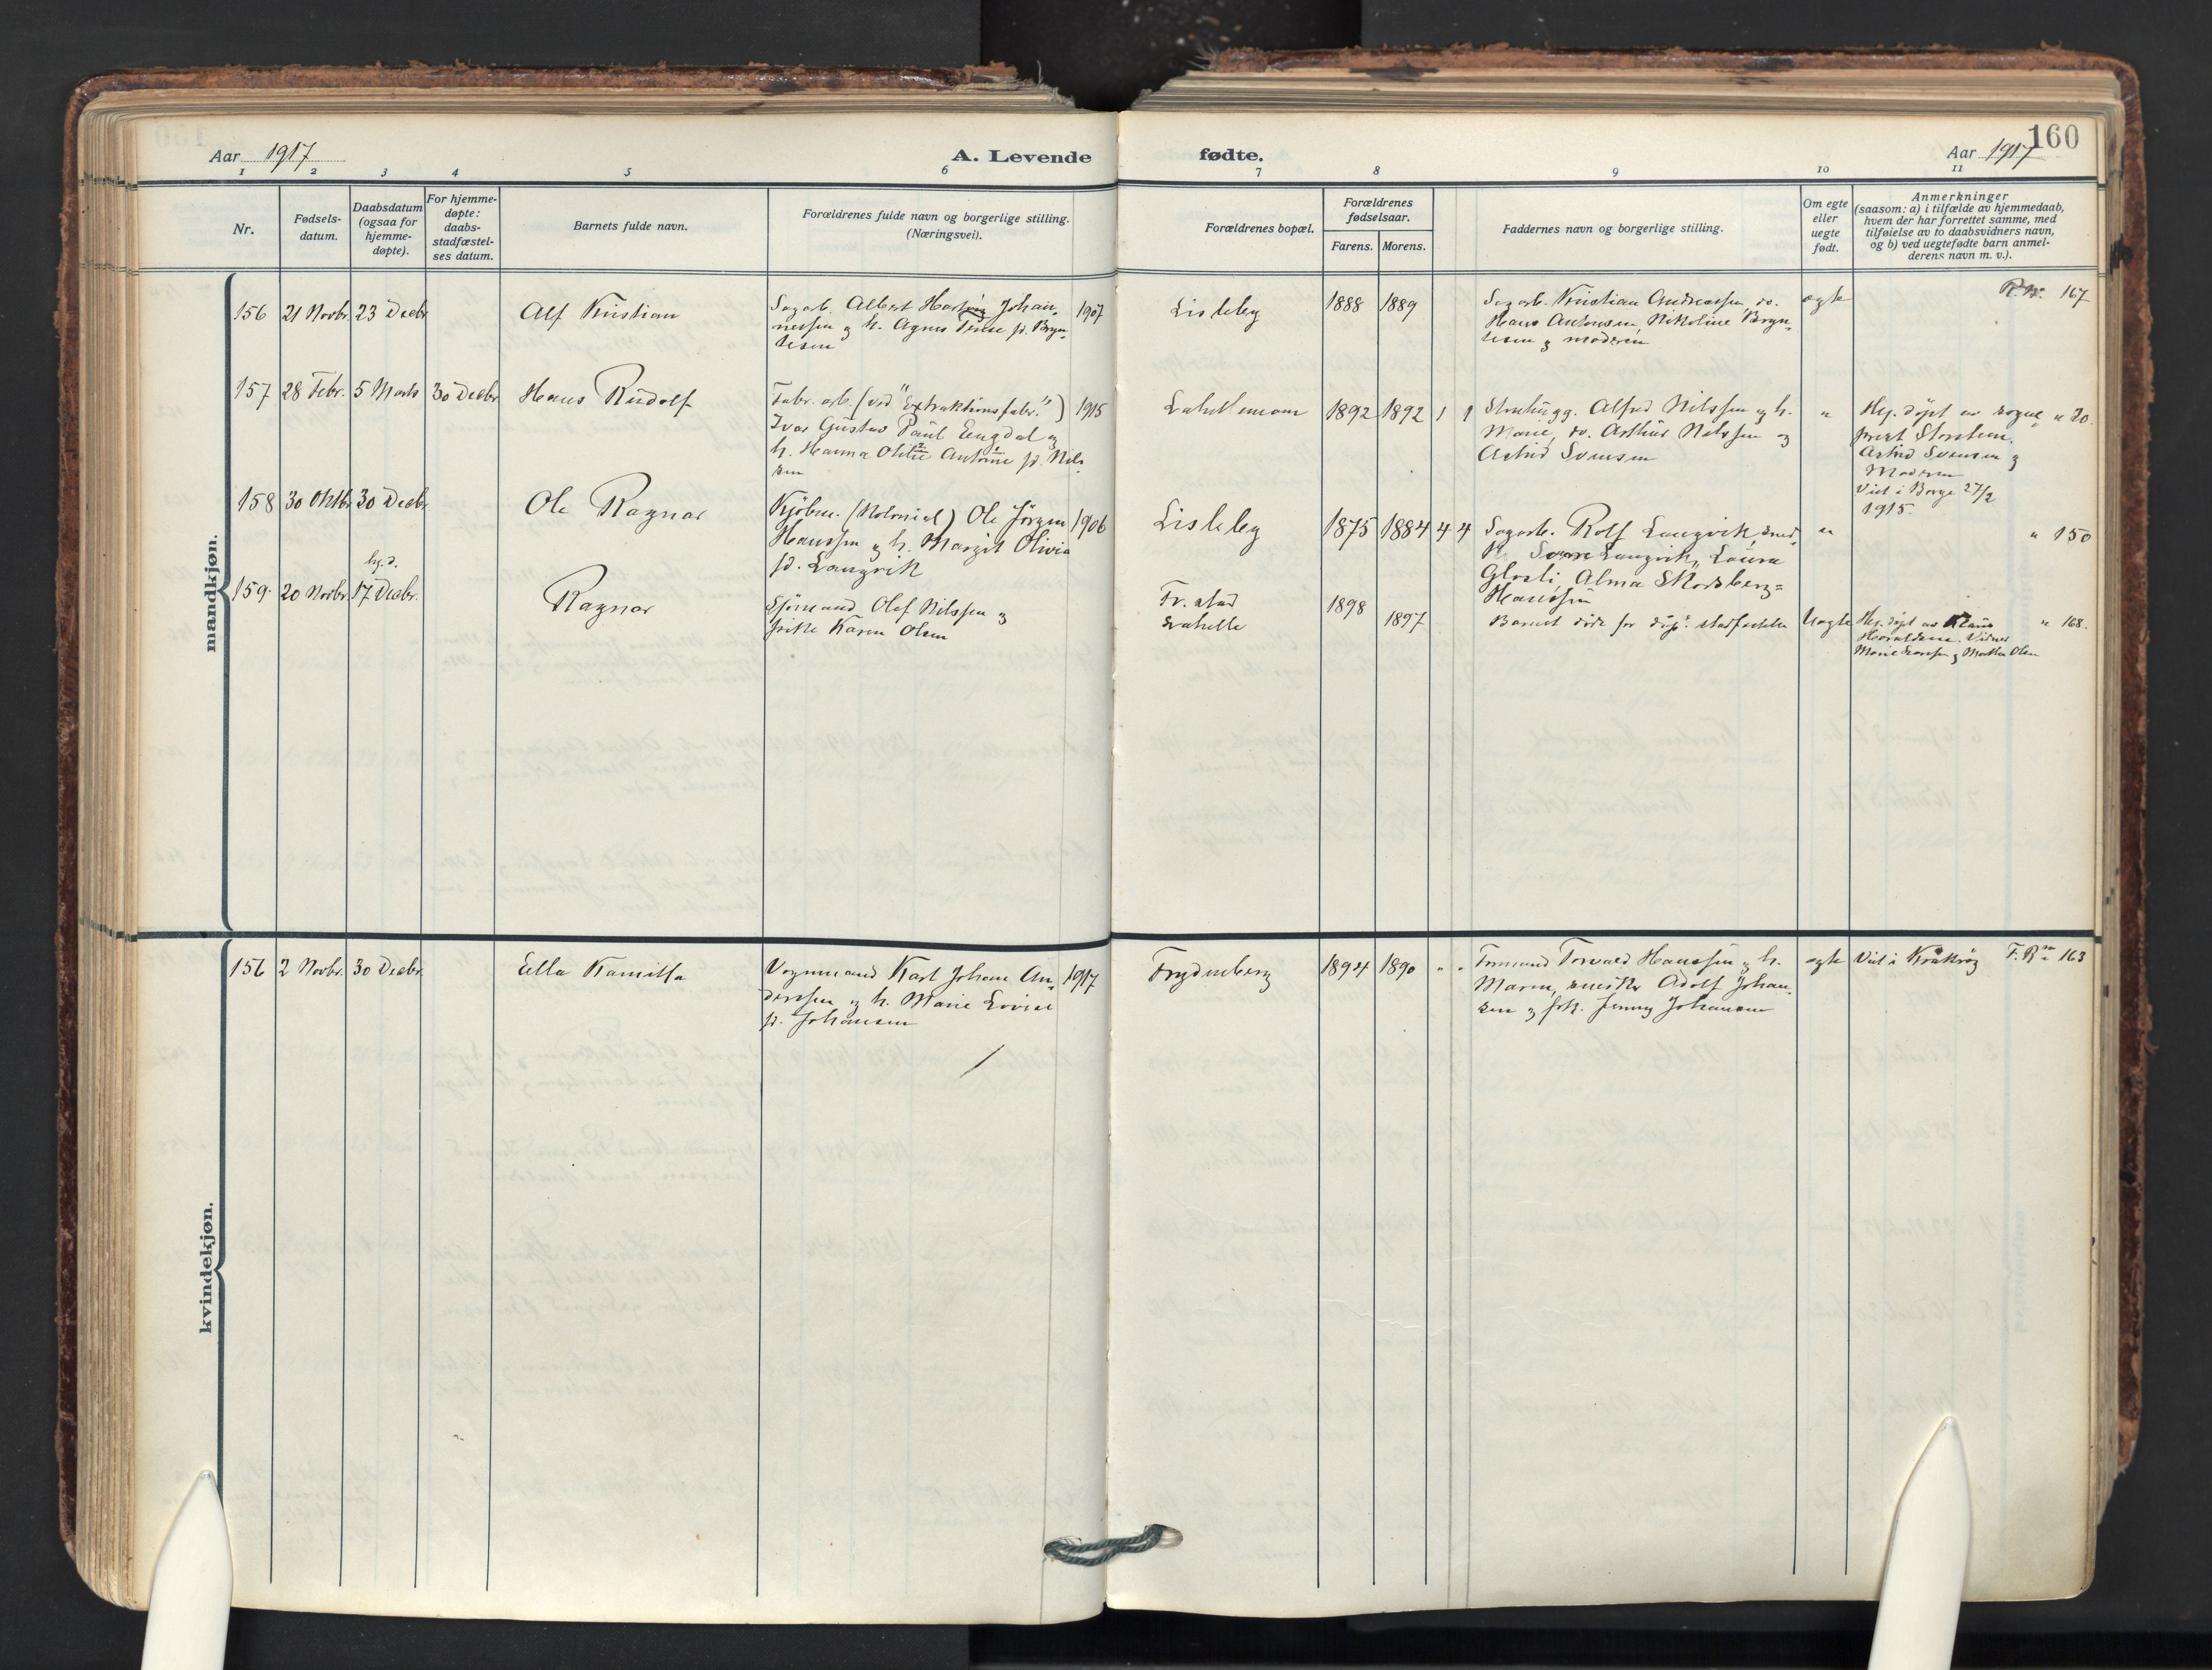 160
Aar 1917
A. Levende
fødte.
Aar 1917
1 2 3 4 5 6 7 8 9 10 11
Nr.
Fødsels-
datum.
Daabsdatum
(ogsaa for
hjemme-
døpte).
For hjemme-
døpte:
daabs-
stadfæstel-
ses datum.
Barnets fulde navn.
Forældrenes fulde navn og borgerlige stilling.
(Næringsvei).
Forældrenes bopæl.
Forældrenes
fødselsaar.
Farens. Morens.
Faddernes navn og borgerlige stilling.
Om egte
eller
uegte
født.
Anmerkninger
(saasom: a) i tilfælde av hjemmedaab,
hvem der har forrettet samme, med
tilføielse av to daabsvidners navn,
og b) ved uegtefødte barn anmel-
derens navn m. v.).
mandkjøn.
156 21 Novbr. 23 Decbr
Alf Kristian
Sagarb. Albert Hartvig Johan-
nessen og h. Agnes f. Bryn-
tesen
1907
Lisleby
1888 1889
Sagarb. Kristian Andreassen, do.
Hans Antonsen, Nikoline Bryn-
tesen og moderen
egte
167
157 28 Febr. 5 Marts 30 Decbr
Hans Rudolf
Fabr. arb. (ved "Extraktionsfabr.")
Ivar Gustav Paul Engdal og
h. Hanna Otilie Antonie f. Nils-
sen
1915
1892 1892 1 1
Stenhugg. Alfred Nilssen og h.
Marie, do. Arthur Nilssen og
Astrid Svensen
"
Hj. døpt av sogne-
prest
Astrid Svensen og
Moderen
Viet i Borge 27/2
1915.
" 20.
158 30 Oktbr 30 Decbr
Ole Ragnar
Kjøbm. (Kolonial) Ole Jörgen
Hanssen og h. Margit Olivia
f. Langvik
1906
Lisleby
1875 1884 4 4
Sagarb. Rolf Langvik,
Langvik, Laura
Alma Skodsberg=
Hanssen
"
" 150
hj. d.
159. 20 Novbr. 17 Decbr.
Ragnar
Sjömand Olaf Nilssen og
frøken Karen Olsen
Fr. stad
1898
1897
Barnet døde før daaps stadfæstelse
Uegte
Hj. døpt av Klaus
Haraldsen. Vidner
Marie og Martha Olsen
" 168.
kvindekjøn.
156 2 Novbr. 30 Decbr.
Ella Kamilla
Vognmand Karl Johan An-
dersen og h. Marie Lovise
f. Johansen
1917
Frydenberg
1894 1890 " "
Formand Torvald Hanssen og h.
Maren, snedker Adolf Johan-
sen og frk. Jenny Johansen
egte
Viet i Kråkrøy
163